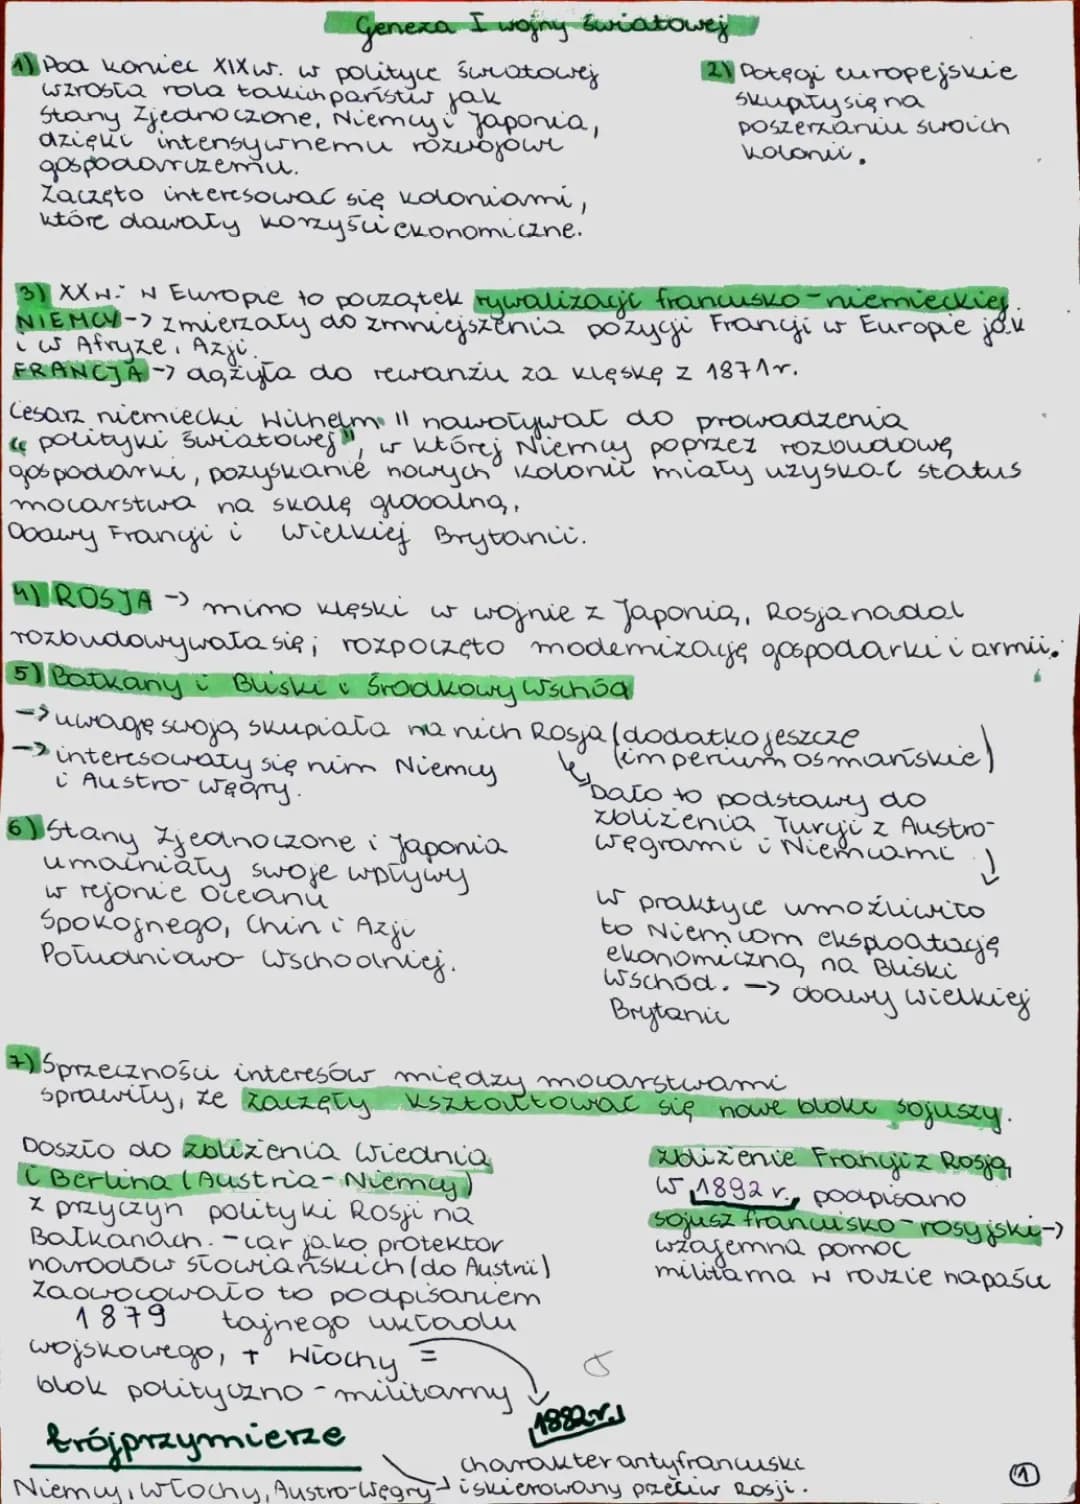 Geneza I wojny światowej
1) Pod koniec XIX w. w polityce światowej
wzrosła rola takich państw jak
Stany Zjednoczone, Niemcy i Japonia,
dzięki intensywnemu rozwojowi
gospodarczemu.
Zaczęto interesować się koloniami,
które dawały korzyści ekonomiczne.
2) Potęgi europejskie
skupiły się na
poszerzaniu swoich
kolonii.
3) XX w. w Europie to początek rywalizacji francusko-niemieckiej.
NIEMCY -> zmierzały do zmniejszenia pozycji Francji w Europie jak
i w Afryze, Azji.
FRANCJA -> dążyła do rewanżu za klęskę z 1871r.
Cesarz niemiecki Wilhelm II nawoływał do prowadzenia
"polityki światowej", w której Niemcy poprzez rozbudowę
gospodarki, pozyskanie nowych kolonii miały uzyskać status
mocarstwa na skalę globalną.
Obawy Francji i Wielkiej Brytanii.
4) ROSJA -> mimo klęski w wojnie z Japonią, Rosja nadal
rozbudowywała się; rozpoczęto modernizację gospodarki i armii.
5) Bałkany i Bliski i Środkowy Wschód
-> uwagę swoją skupiała na nich Rosja (dodatko jeszcze
imperium osmańskie)
-> interesowały się nim Niemcy
i Austro-Węgry.
Dało to podstawy do
zbliżenia Turcji z Austro-
węgrami i Niemcami
w praktyce umożliwiło
to Niemcom eksploatację
ekonomiczną na Bliski
Wschód. -> obawy Wielkiej
Brytanii
6) Stany Zjednoczone i Japonia
umacniały swoje wpływy
w rejonie Oceanu
Spokojnego, Chin i Azji
Południowo-Wschodniej.
7) Sprzeczności interesów między mocarstwami
sprawiły, że zaczęły kształtować się nowe bloki sojuszy.
Doszło do zbliżenia Wiednia
i Berlina (Austria-Niemcy)
z przyczyn polityki Rosji na
Bałkanach. - car jako protektor
narodów słowiańskich (do Austrii)
Zaowocowało to podpisaniem
1879 tajnego układu
wojskowego, + Włochy =
blok polityczno-militarny
1882 r.
trójprzymierze
Niemcy, Włochy, Austro-Węgry
charakter antyfrancuski
i skierowany przeciw Rosji.
zbliżenie Francji z Rosją
w 1892 r. podpisano
sojusz francuisko-rosyjski ->
wzajemna pomoc
militarna w razie napaści
1